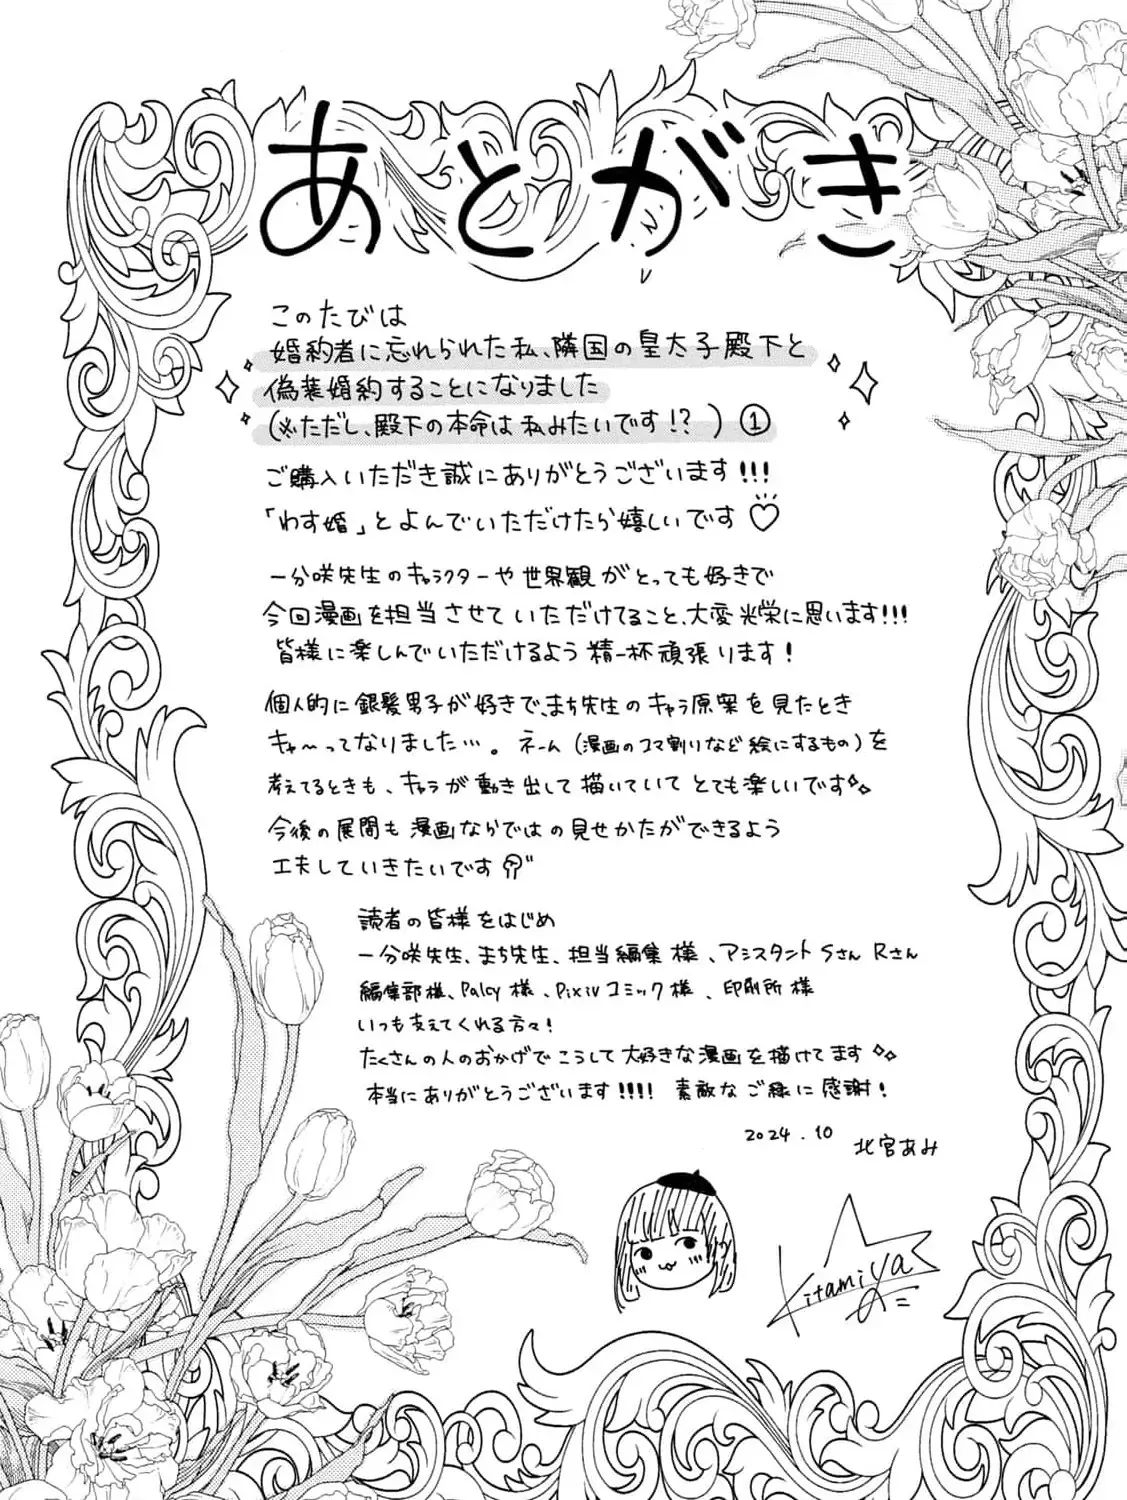 あとがき
このたびは
婚約者に忘れられた私、隣国の皇太子殿下と
偽装婚約することになりました
(※ただし、殿下の本命は私みたいです!? ) ①
ご購入いただき誠にありがとうございます!!!
「わす婚」とよんでいただけたら嬉しいです♡
一分咲先生のキャラクターや世界観がとっても好きで
今回漫画を担当させていただけてること、大変光栄に思います!!!
皆様に楽しんでいただけるよう精一杯頑張ります!
個人的に銀髪男子が好きで、まち先生のキャラ原案を見たとき
キャ〜ってなりました…。ネーム(漫画のコマ割りなど絵にするもの)を
考えてるときも、キャラが動き出して描いていてとても楽しいです
今後の展開も漫画ならではの見せかたができるよう
工夫していきたいです
読者の皆様をはじめ
一分咲先生、まち先生、担当編集様、アシスタントSさん Rさん
編集部様、Palcy様、Pixivコミック様、印刷所様
いつも支えてくれる方々!
たくさんの人のおかげでこうして大好きな漫画を描けてます
本当にありがとうございます!!!! 素敵なご縁に感謝!
2024.10 北宮あみ
Kitamiya